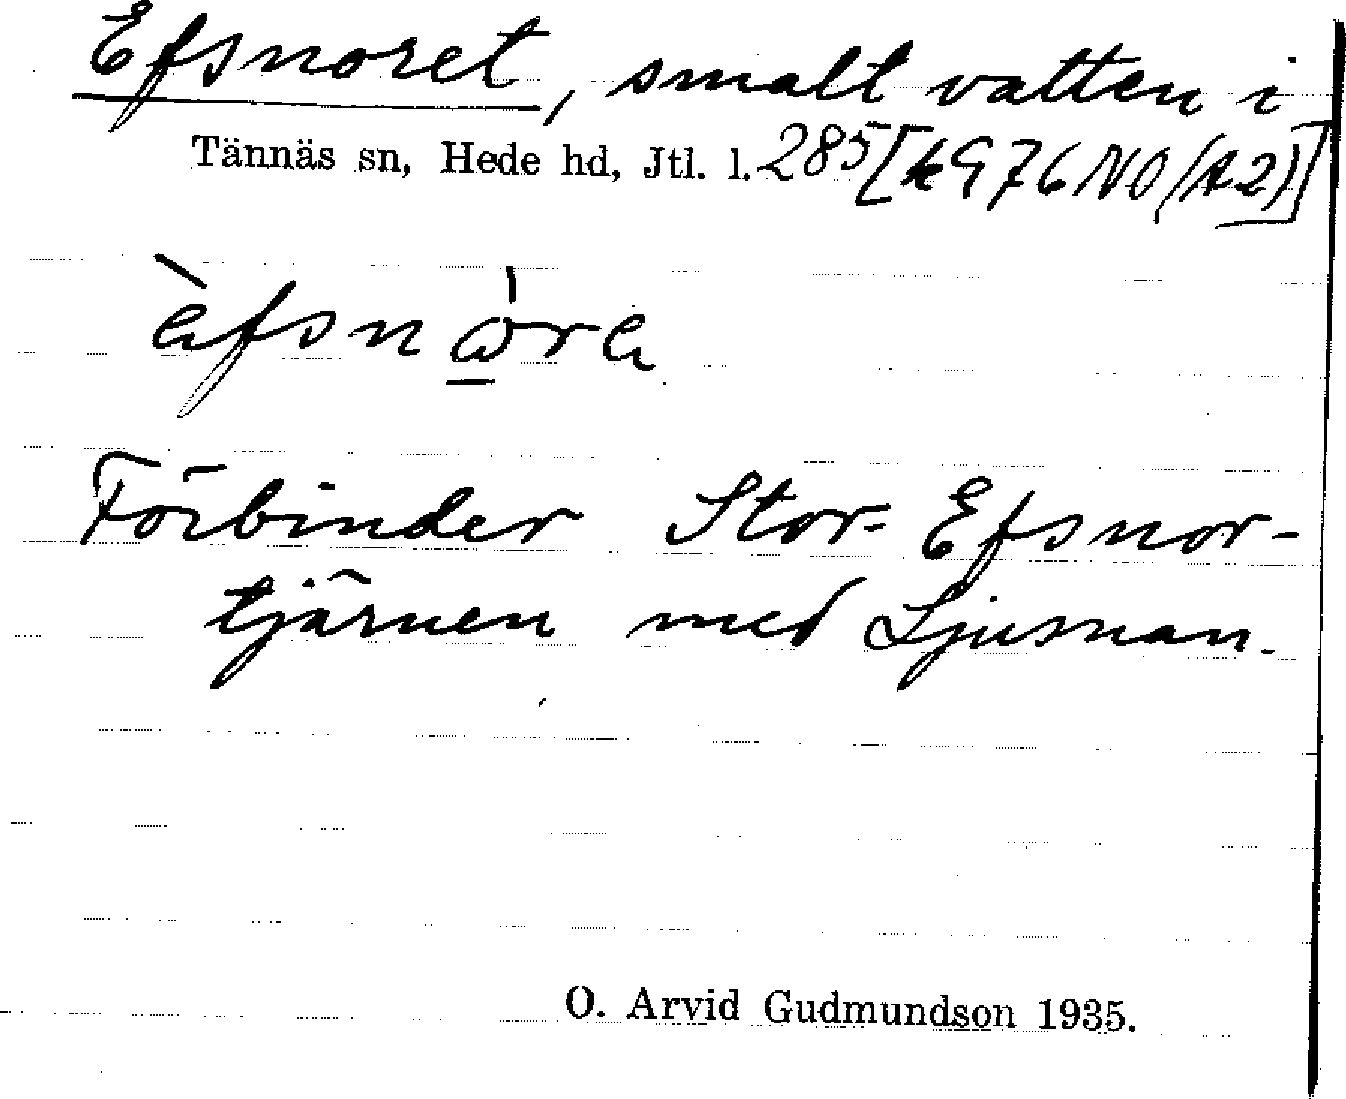 Efsnoret, smalt vatten i
Tännäs sn, Hede hd, Jtl. l. 285 [k976NO(A2)]
èfsnòra
Förbinder Stor-Efsnor-
tjärnen med Ljusnan.
O. Arvid Gudmundson 1935.